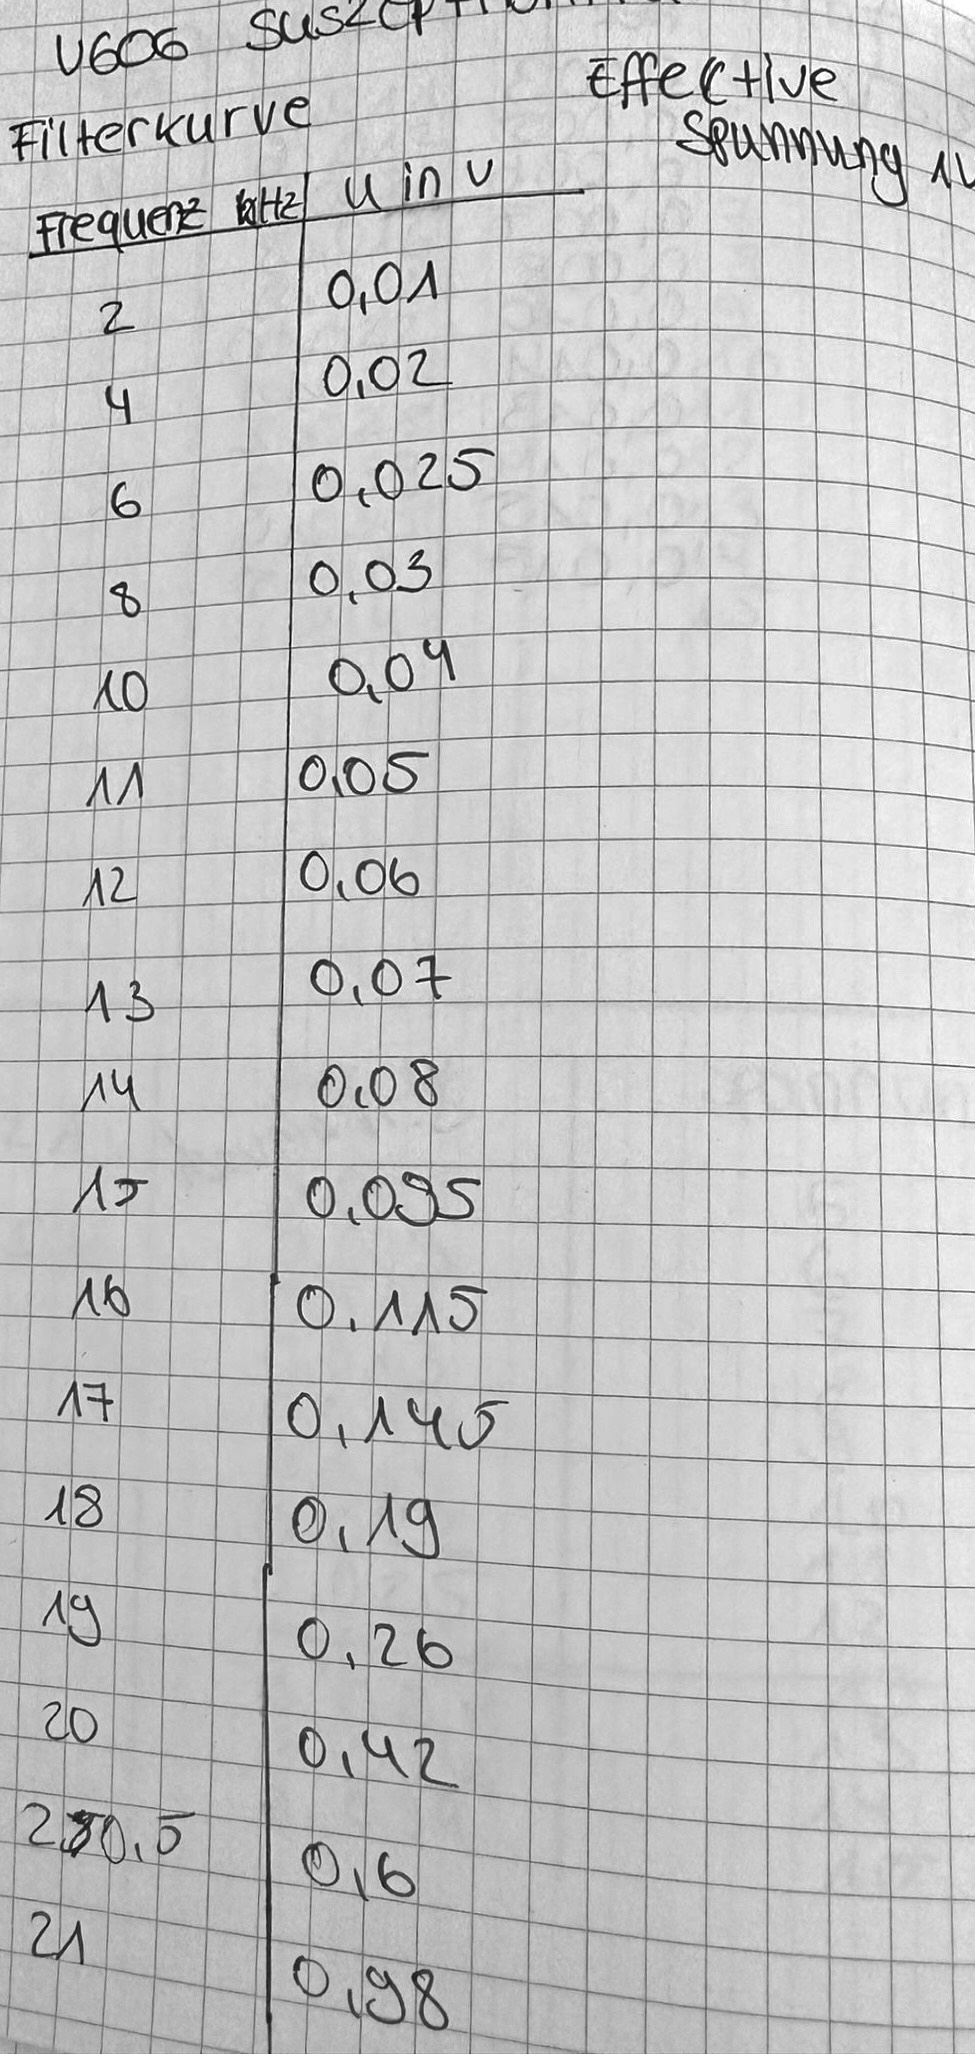 V606 Suszept
Effective
Filterkurve
Spannung 1V
Frequenz kHz U in V
2 0,01
4 0,02
6 0,025
8 0,03
10 0,04
11 0,05
12 0,06
13 0,07
14 0,08
15 0,095
16 0,115
17 0,145
18 0,19
19 0,26
20 0,42
20,5 0,6
21 0,98